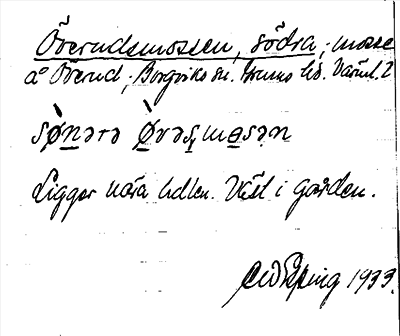 Överudsmossen, södra; mosse
å Överud, Borgviks sn. Grums hd. Värml. l
sø̀nərə Ø̀vəsmosən
Ligger nära
Väst i gården.
1933.